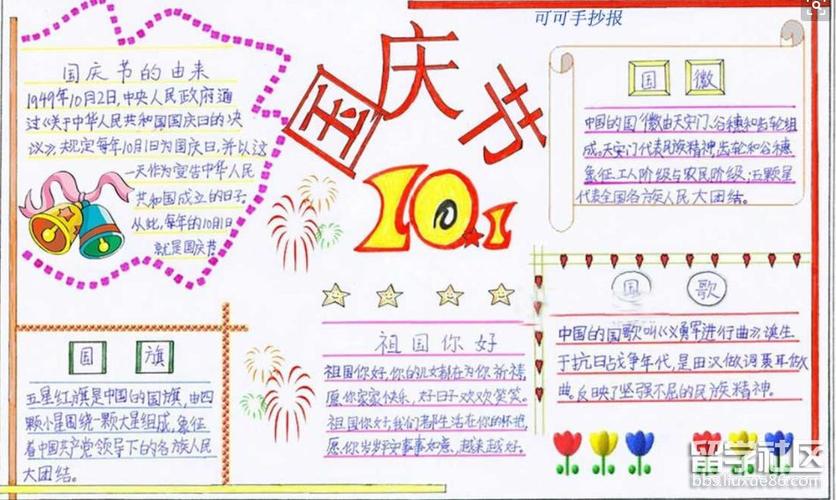 可可手抄报
国庆节
10.1
国庆节的由来
1949年10月2日,中央人民政府通
过《关于中华人民共和国国庆日的决
议》,规定每年10月1日为国庆日,并以这
一天作为宣告中华人民
共和国成立的日子.
从此,每年的10月1日
就是国庆节.
国徽
中国的国徽由天安门、谷穗和齿轮组
成。天安门代表民族精神,齿轮和谷穗
象征工人阶级与农民阶级;五颗星
代表全国各族人民大团结。
国旗
五星红旗是中国的国旗,由四
颗小星围绕一颗大星组成,象征
着中国共产党领导下的各族人民
大团结。
祖国你好
祖国你好,你的儿女都在为你祈祷,
愿你家家快乐,好日子欢欢笑笑。
祖国你好,我们都生活在你的怀抱,
愿你岁岁平安事事如意,越来越好。
国歌
中国的国歌叫《义勇军进行曲》诞生
于抗日战争年代,是田汉做词聂耳做
曲。反映了坚强不屈的民族精神。
留学社区
bbs.liuxue86.com